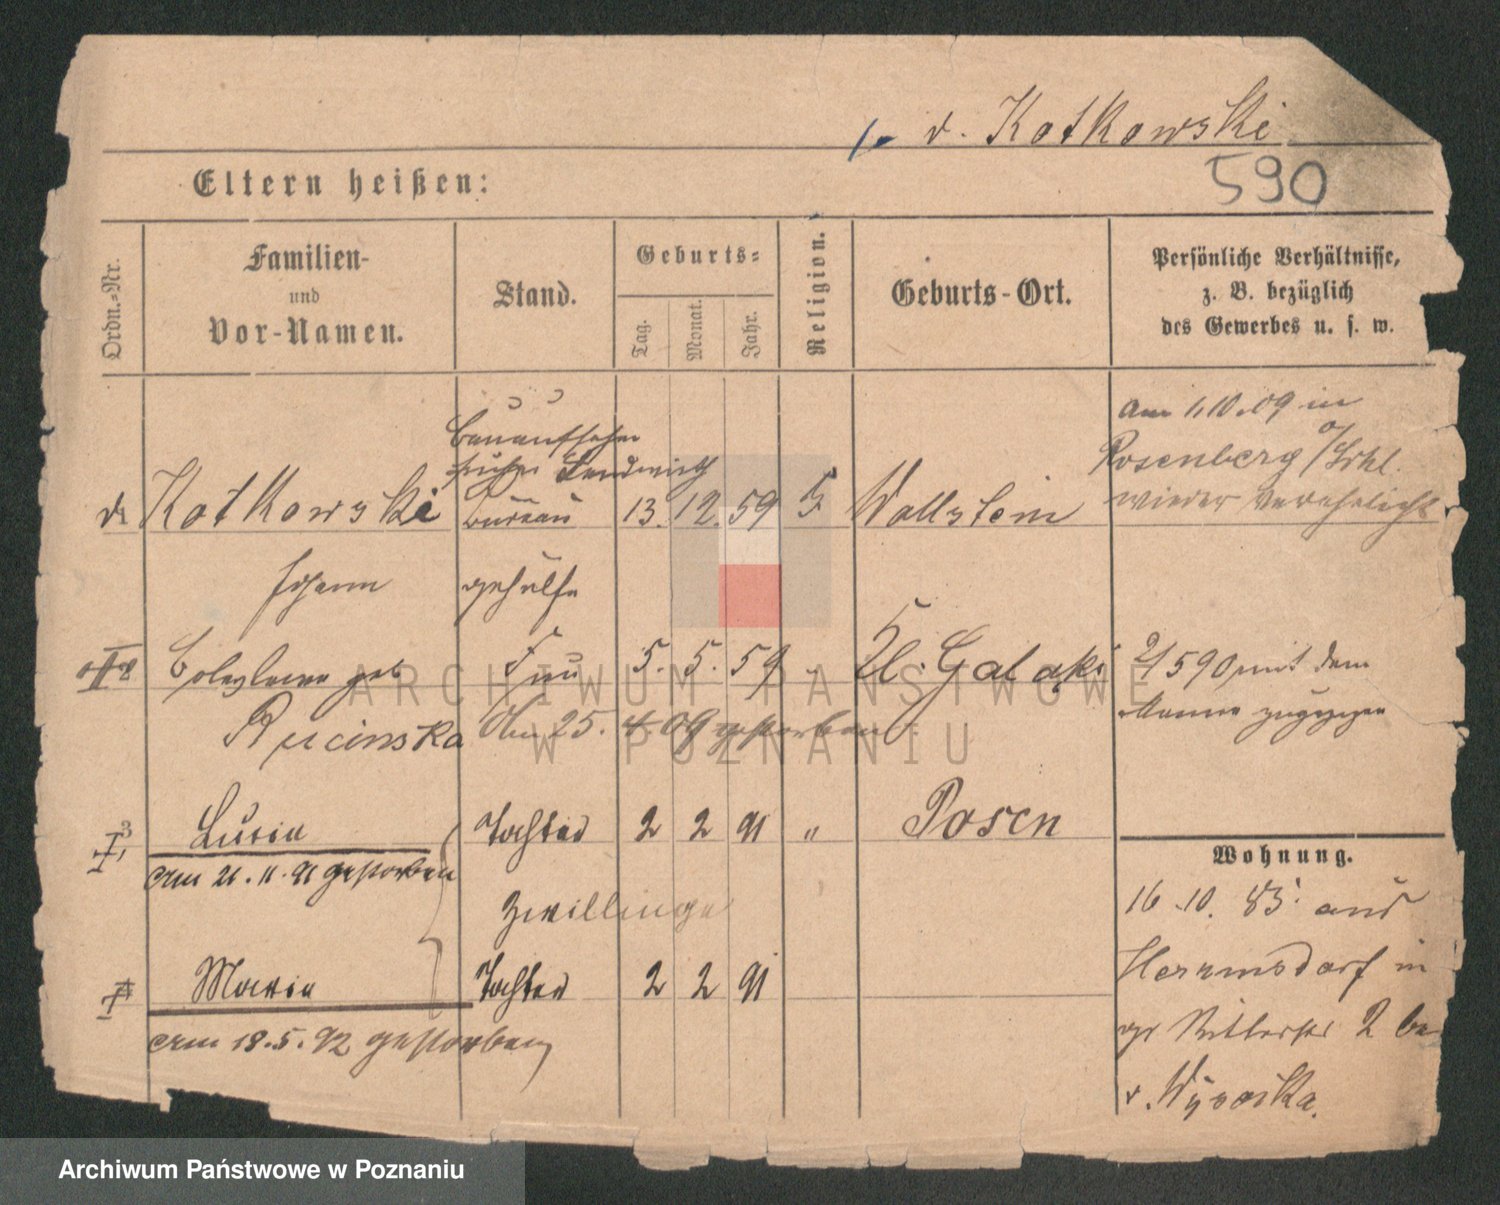 v. Kotkowski
590
Eltern heißen:
Ordn.-Nr.
Familien-
und
Vor-Namen.
Stand.
Geburts-
Tag.
Monat.
Jahr.
Religion.
Geburts-Ort.
Persönliche Verhältnisse,
z. B. bezüglich
des Gewerbes u. s. w.
Bauaufseher
früher Landwirth
v. Kotkowski
Büreau
13. 12. 59
Wollstein
am 1.10.09 in
Rosenberg O/Schl.
wieder verehelicht
Johann
gehülfe
geb
Frau
5. 5. 59
"
Kl. Galaki
590 mit dem
Manne zugezogen
Rucinska
Am 25. 4. 09 gestorben
3
Lucia
Tochter
2 2 91
"
Posen
am 21. 11. 91 gestorben
Zwillinge
4
Maria
Tochter
2 2 91
am 18. 5. 92 gestorben
Wohnung.
16.10. 83 aus
Hermsdorf in
gr Ritterstr 2 bei
v. Wysocka.
ARCHIWUM PAŃSTWOWE
W POZNANIU
Archiwum Państwowe w Poznaniu